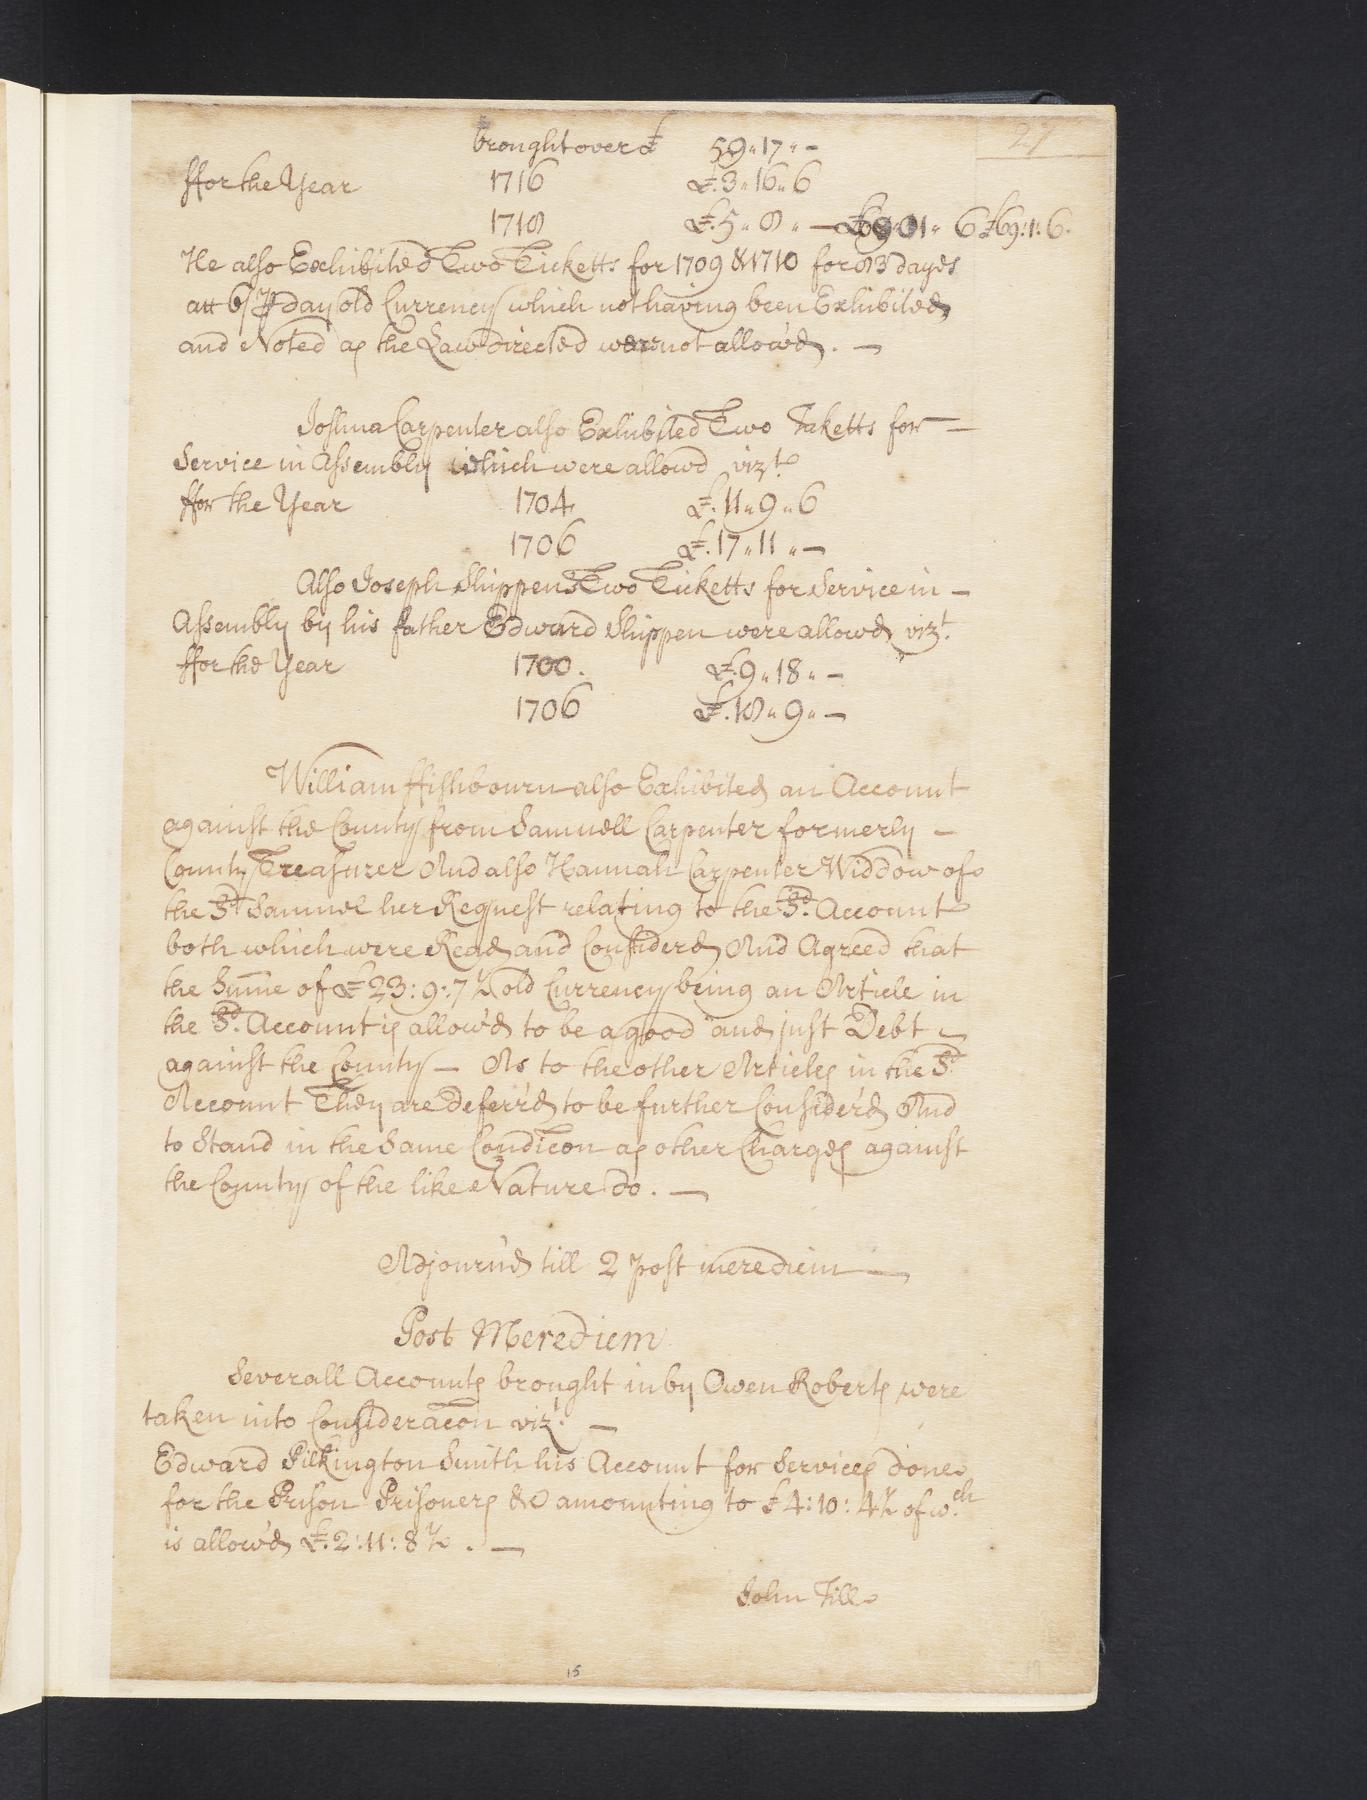 27
brought over £ 59 " 17 " -
ffor the Year 1716 £. 3 " 16 " 6
1718 £. 5 " 8 " - £69 " 01 " 6 £69 : 1 : 6.
He also Exhibited Two Ticketts for 1709 & 1710 for 83 dayes
att 6/ ⅌ day old Currency which not having been Exhibited
and Noted as the Law directed were not allow'd. —
Joshua Carpenter also Exhibited Two Taketts for —
Service in Assembly which were allowd vizt
ffor the Year 1704 £. 11 " 9 " 6
1706 £. 17 " 11 " —
Also Joseph Shippens Two Ticketts for Service in —
Assembly by his father Edward Shippen were allowd vizt.
ffor the Year 1700. £. 9 " 18 " —
1706 £. 18 " 9 " —
William ffishbourn also Exhibited an Account
against the County from Samuell Carpenter formerly —
County Treasurer And also Hannah Carpenter Widdow of
the Sd Samuel her Request relating to the Sd. Account
both which were Read and Considerd And Agreed that
the Sume of £ 23 : 9 : 7½ old Currency being an Article in
the Sd. Account is allow'd to be a good and just Debt —
against the County — As to the other Articles in the Sd
Account They are Deferr'd to be further Consider'd And
to Stand in the Same Condicon as other Charges against
the County of the like Nature do. —
Adjourn'd till 2 post merediem —
Post Merediem
Severall Accounts brought in by Owen Roberts were
taken into Consideracon vizt. —
Edward Pilkington Smith his Account for Services done
for the Prison Prisoners &c amounting to £ 4 : 10 : 4½ of wch
is allow'd £. 2 : 11 : 8½. —
John Till
15